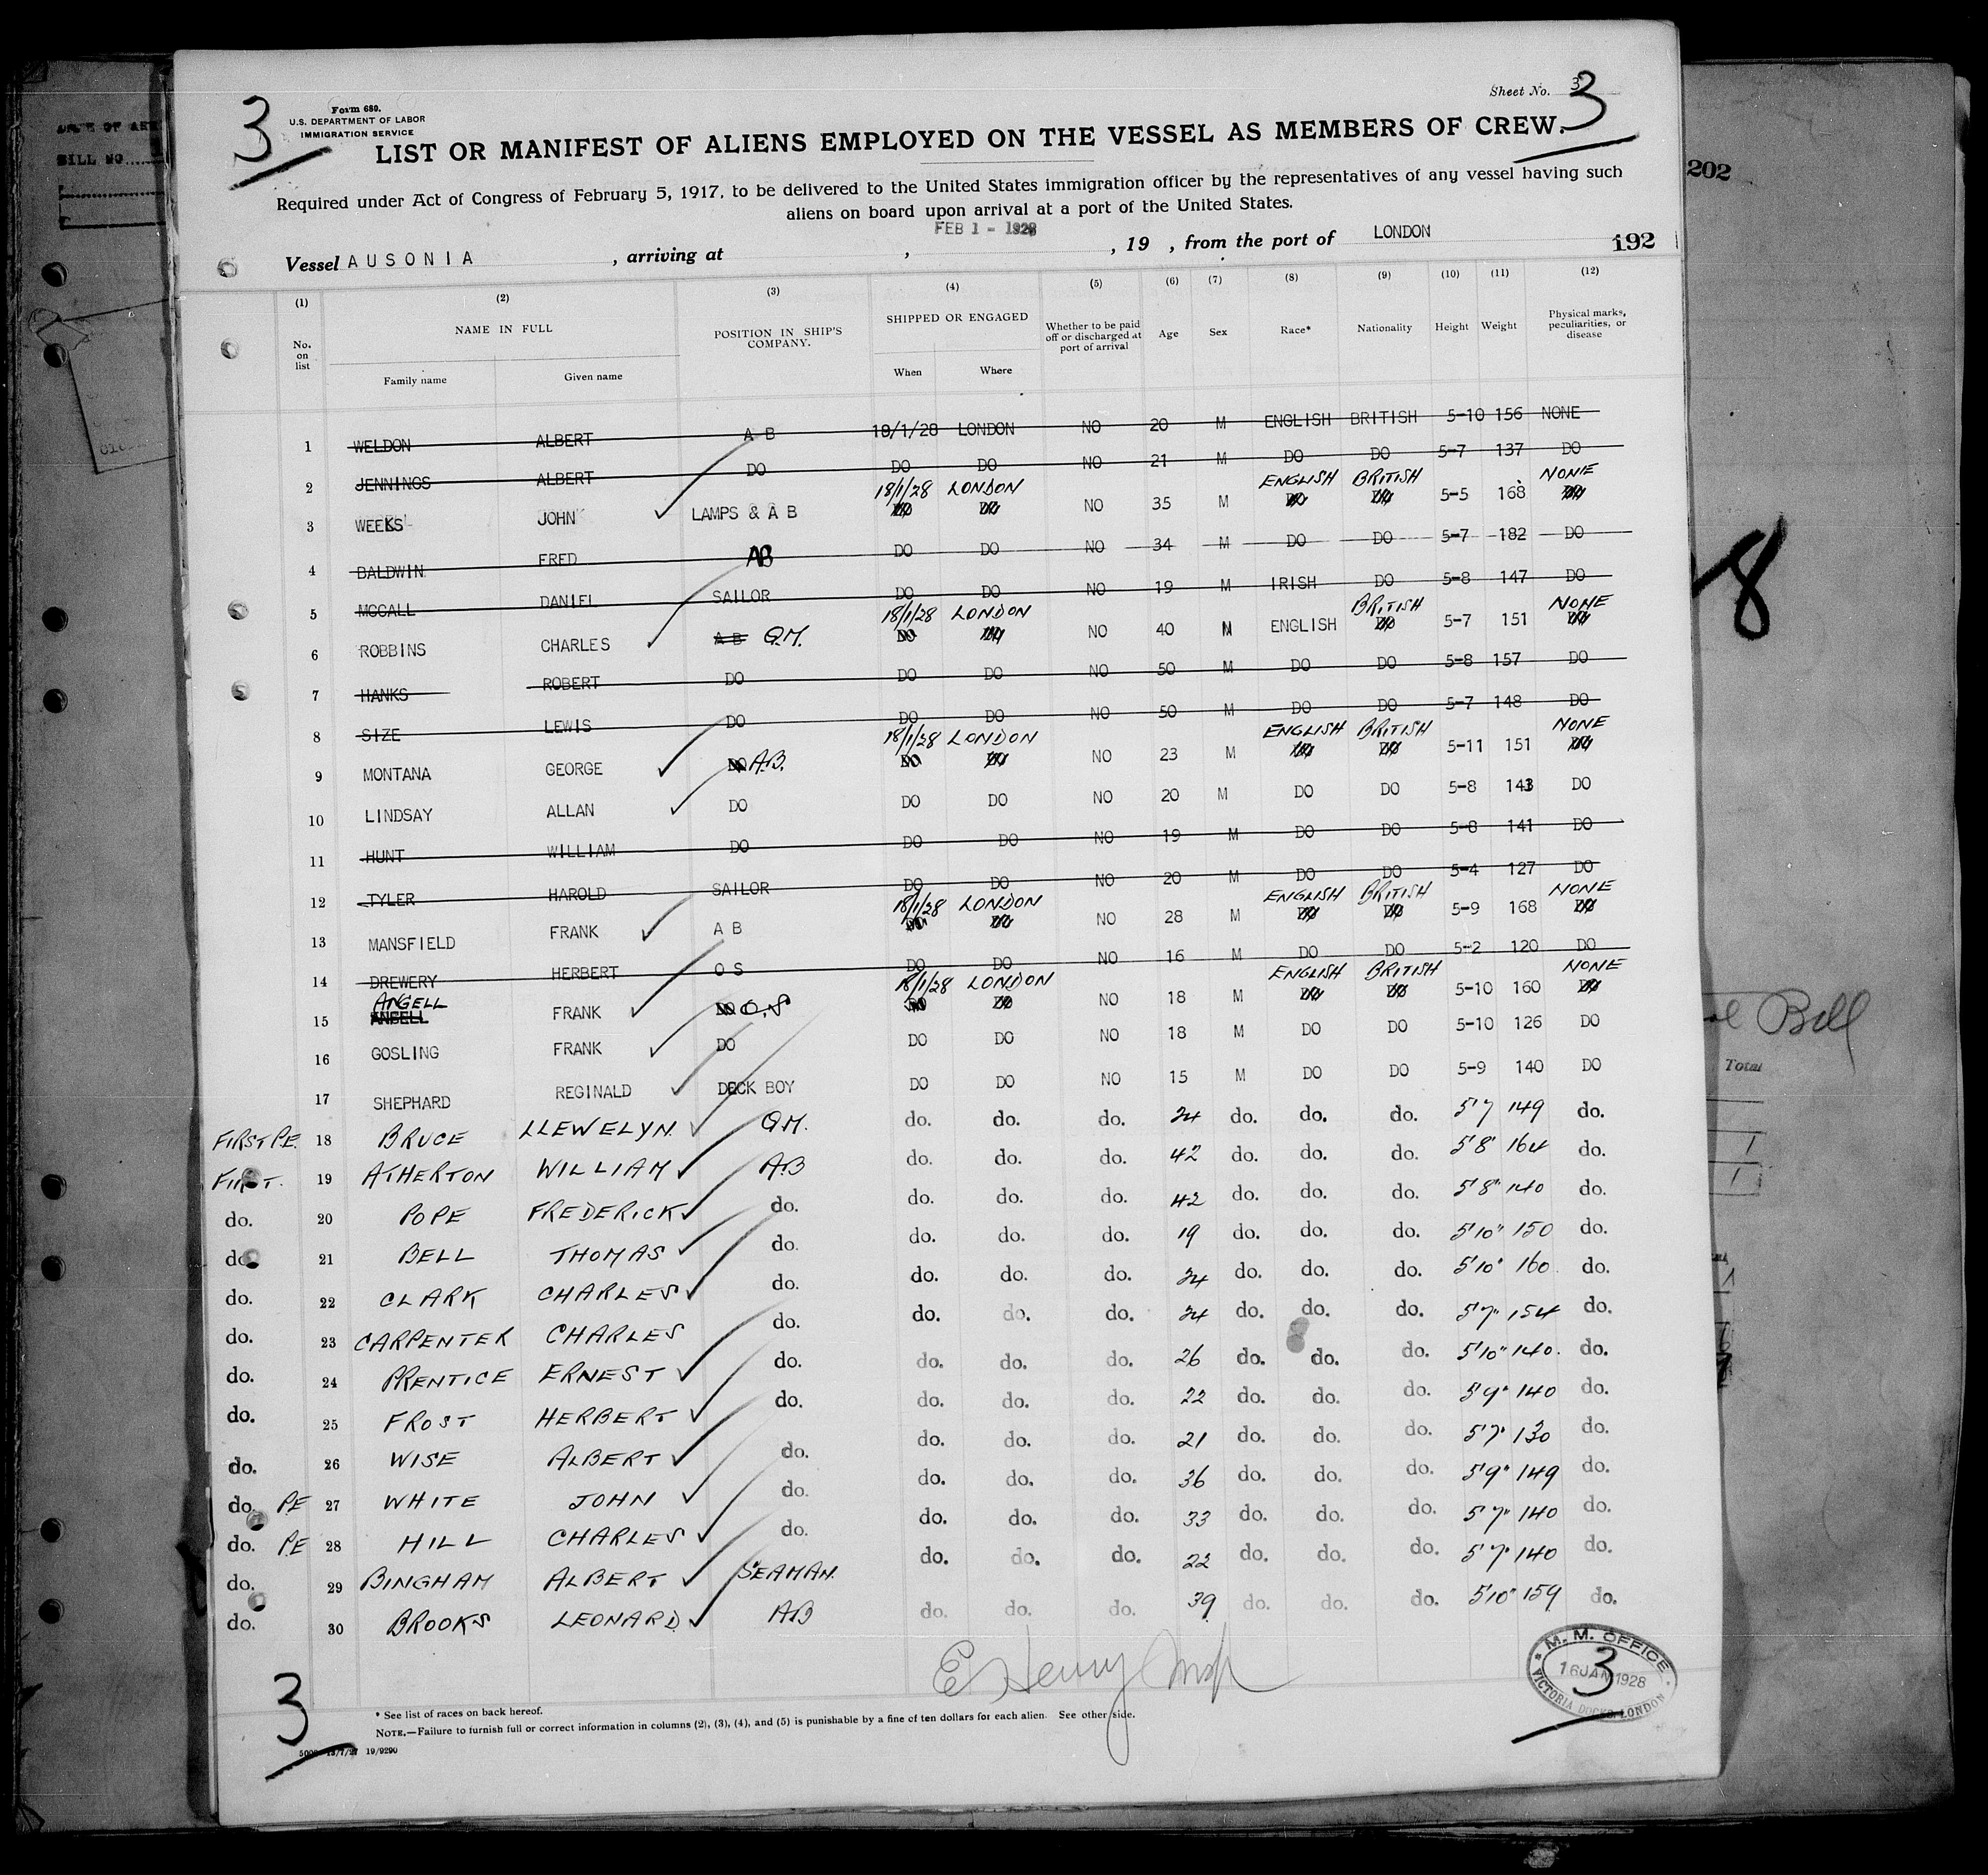 Sheet No. 3
3 3
Form 680.
U.S. DEPARTMENT OF LABOR
IMMIGRATION SERVICE
LIST OR MANIFEST OF ALIENS EMPLOYED ON THE VESSEL AS MEMBERS OF CREW.
Required under Act of Congress of February 5, 1917, to be delivered to the United States immigration officer by the representatives of any vessel having such
aliens on board upon arrival at a port of the United States.
FEB 1 - 1928
Vessel AUSONIA , arriving at , , 19 , from the port of LONDON 192
(1) (2) (3) (4) (5) (6) (7) (8) (9) (10) (11) (12)
No. on list NAME IN FULL POSITION IN SHIP'S COMPANY. SHIPPED OR ENGAGED Whether to be paid off or discharged at port of arrival Age Sex Race* Nationality Height Weight Physical marks, peculiarities, or disease
Family name Given name When Where
1 WELDON ALBERT A B 19/1/28 LONDON NO 20 M ENGLISH BRITISH 5-10 156 NONE
2 JENNINGS ALBERT DO DO DO NO 21 M DO DO 5-7 137 DO
3 WEEKS JOHN LAMPS & A B 18/1/28 LONDON NO 35 M ENGLISH BRITISH 5-5 168 NONE
4 BALDWIN FRED AB DO DO NO 34 M DO DO 5-7 182 DO
5 MCCALL DANIEL SAILOR DO DO NO 19 M IRISH DO 5-8 147 DO
6 ROBBINS CHARLES A B Q.M. 18/1/28 LONDON NO 40 M ENGLISH BRITISH 5-7 151 NONE
7 HANKS ROBERT DO DO DO NO 50 M DO DO 5-8 157 DO
8 SIZE LEWIS DO DO DO NO 50 M DO DO 5-7 148 DO
9 MONTANA GEORGE DO A.B. 18/1/28 LONDON NO 23 M ENGLISH BRITISH 5-11 151 NONE
10 LINDSAY ALLAN DO DO DO NO 20 M DO DO 5-8 143 DO
11 HUNT WILLIAM DO DO DO NO 19 M DO DO 5-8 141 DO
12 TYLER HAROLD SAILOR DO DO NO 20 M DO DO 5-4 127 DO
13 MANSFIELD FRANK A B 18/1/28 LONDON NO 28 M ENGLISH BRITISH 5-9 168 NONE
14 DREWERY HERBERT O S DO DO NO 16 M DO DO 5-2 120 DO
15 ANGELL FRANK DO O.S 18/1/28 LONDON NO 18 M ENGLISH BRITISH 5-10 160 NONE
16 GOSLING FRANK DO DO DO NO 18 M DO DO 5-10 126 DO
17 SHEPHARD REGINALD DECK BOY DO DO NO 15 M DO DO 5-9 140 DO
FIRST P.E. 18 BRUCE LLEWELYN Q.M. do. do. do. 24 do. do. do. 5'7 149 do.
FIRST. 19 ATHERTON WILLIAM A.B do. do. do. 42 do. do. do. 5'8" 164 do.
do. 20 POPE FREDERICK do. do. do. do. 42 do. do. do. 5'8" 140 do.
do. 21 BELL THOMAS do. do. do. do. 19 do. do. do. 5'10" 150 do.
do. 22 CLARK CHARLES do. do. do. do. 24 do. do. do. 5'10" 160 do.
do. 23 CARPENTER CHARLES do. do. do. do. 24 do. do. do. 5'7" 154 do.
do. 24 PRENTICE ERNEST do. do. do. do. 26 do. do. do. 5'10" 140. do.
do. 25 FROST HERBERT do. do. do. do. 22 do. do. do. 5'9" 140 do.
do. 26 WISE ALBERT do. do. do. do. 21 do. do. do. 5'7" 130 do.
do. P.E 27 WHITE JOHN do. do. do. do. 36 do. do. do. 5'9" 149 do.
do. P.E 28 HILL CHARLES do. do. do. do. 33 do. do. do. 5'7" 140 do.
do. 29 BINGHAM ALBERT SEAMAN. do. do. do. 22 do. do. do. 5'7" 140 do.
do. 30 BROOKS LEONARD AB do. do. do. 39 do. do. do. 5'10" 159 do.
E Henry
M. M. OFFICE
16 JAN 1928
VICTORIA DOCKS. LONDON
3 3
* See list of races on back hereof.
NOTE.—Failure to furnish full or correct information in columns (2), (3), (4), and (5) is punishable by a fine of ten dollars for each alien. See other side.
19/9290
BILL NO
202
8
Bell
Total